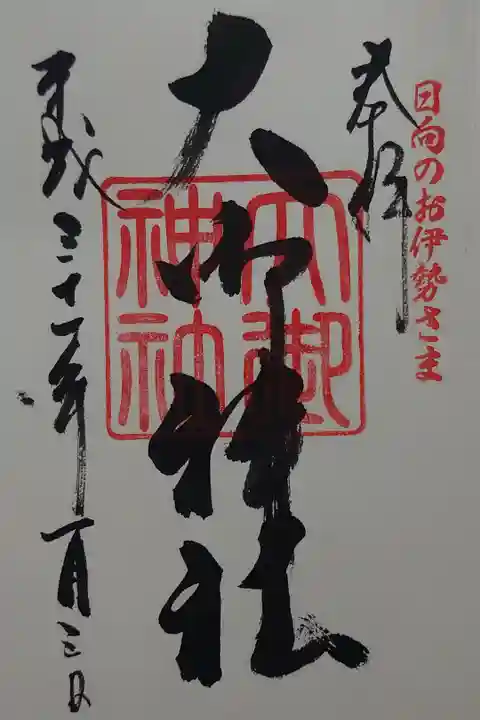 日向のお伊勢さま
奉拝
大御神社
大御
神社
平成三十一年一月三日